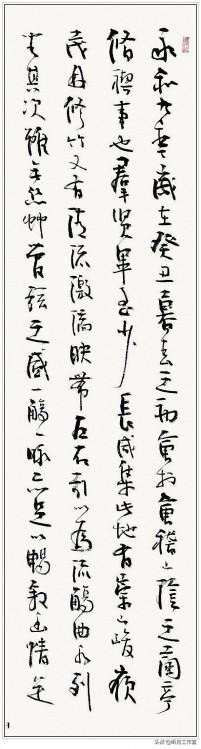 永和九年歲在癸丑暮春之初會於會稽山陰之蘭亭
脩禊事也羣賢畢至少長咸集此地有崇山峻嶺
茂林修竹又有清流激湍映帶左右引以為流觴曲水列
坐其次雖無絲竹管弦之盛一觴一詠亦足以暢敘幽情是
头条@明月工作室